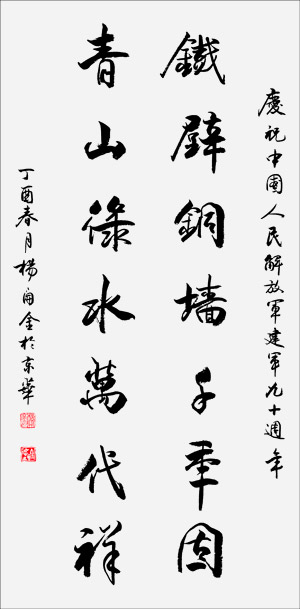 慶祝中國人民解放軍建軍九十週年
鐵壁銅墻千秊固
青山綠水萬代祥
丁酉春月楊金於京華